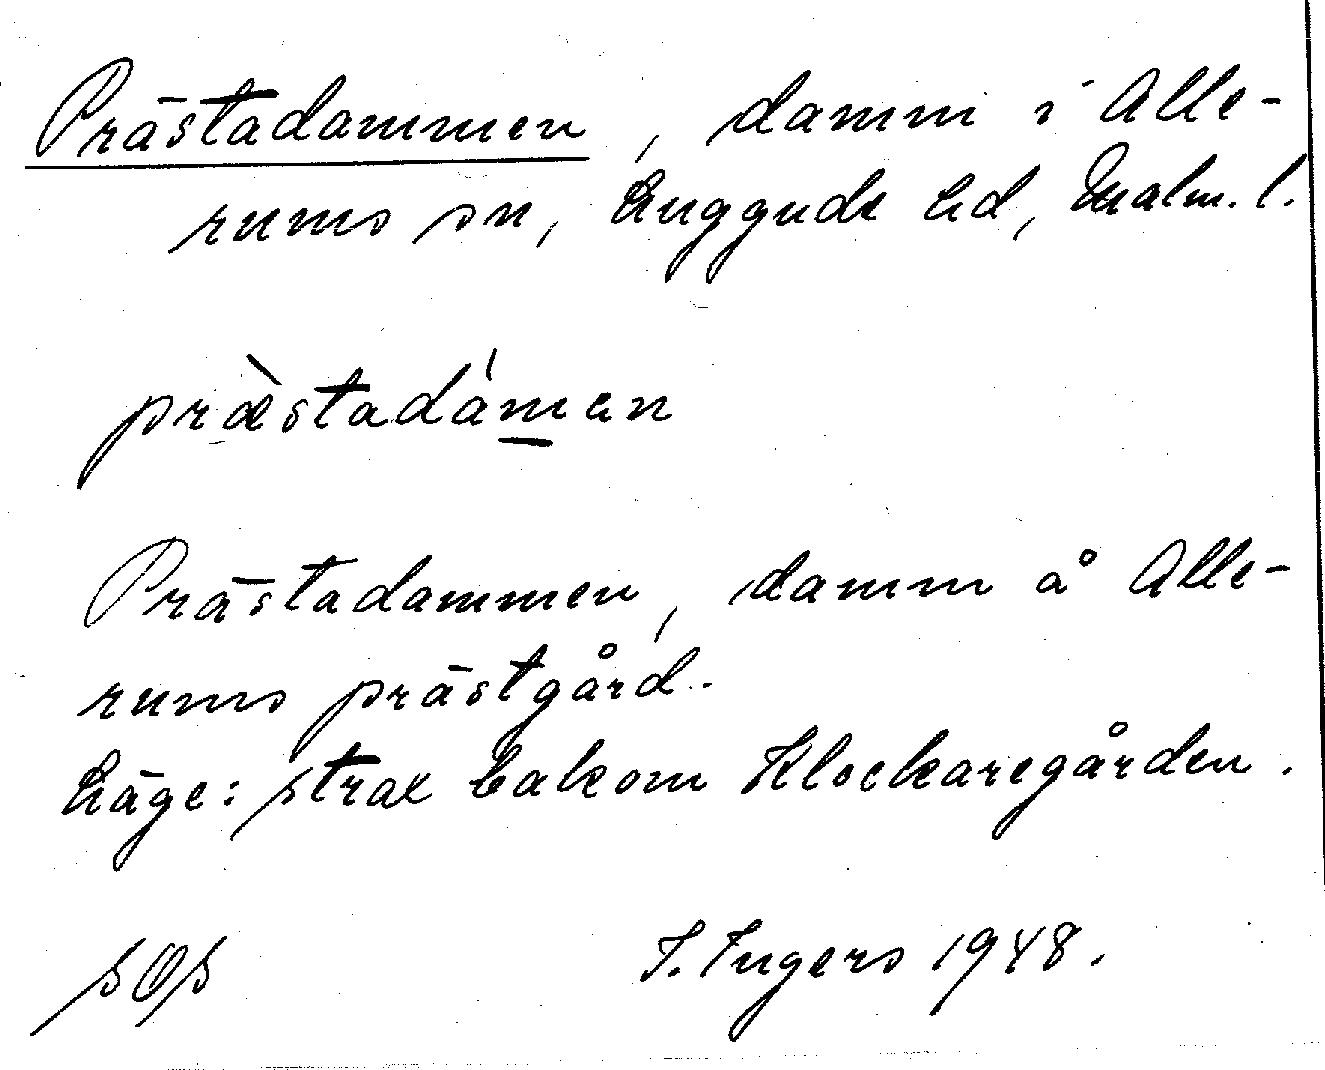 Prästadammen, damm i Alle-
rums sn, Luggude hd, Malm. l.
præ̀stadám̲an
Prästadammen, damm å Alle-
rums prästgård.
Läge: strax bakom Klockaregården.
I. Ingers 1948.